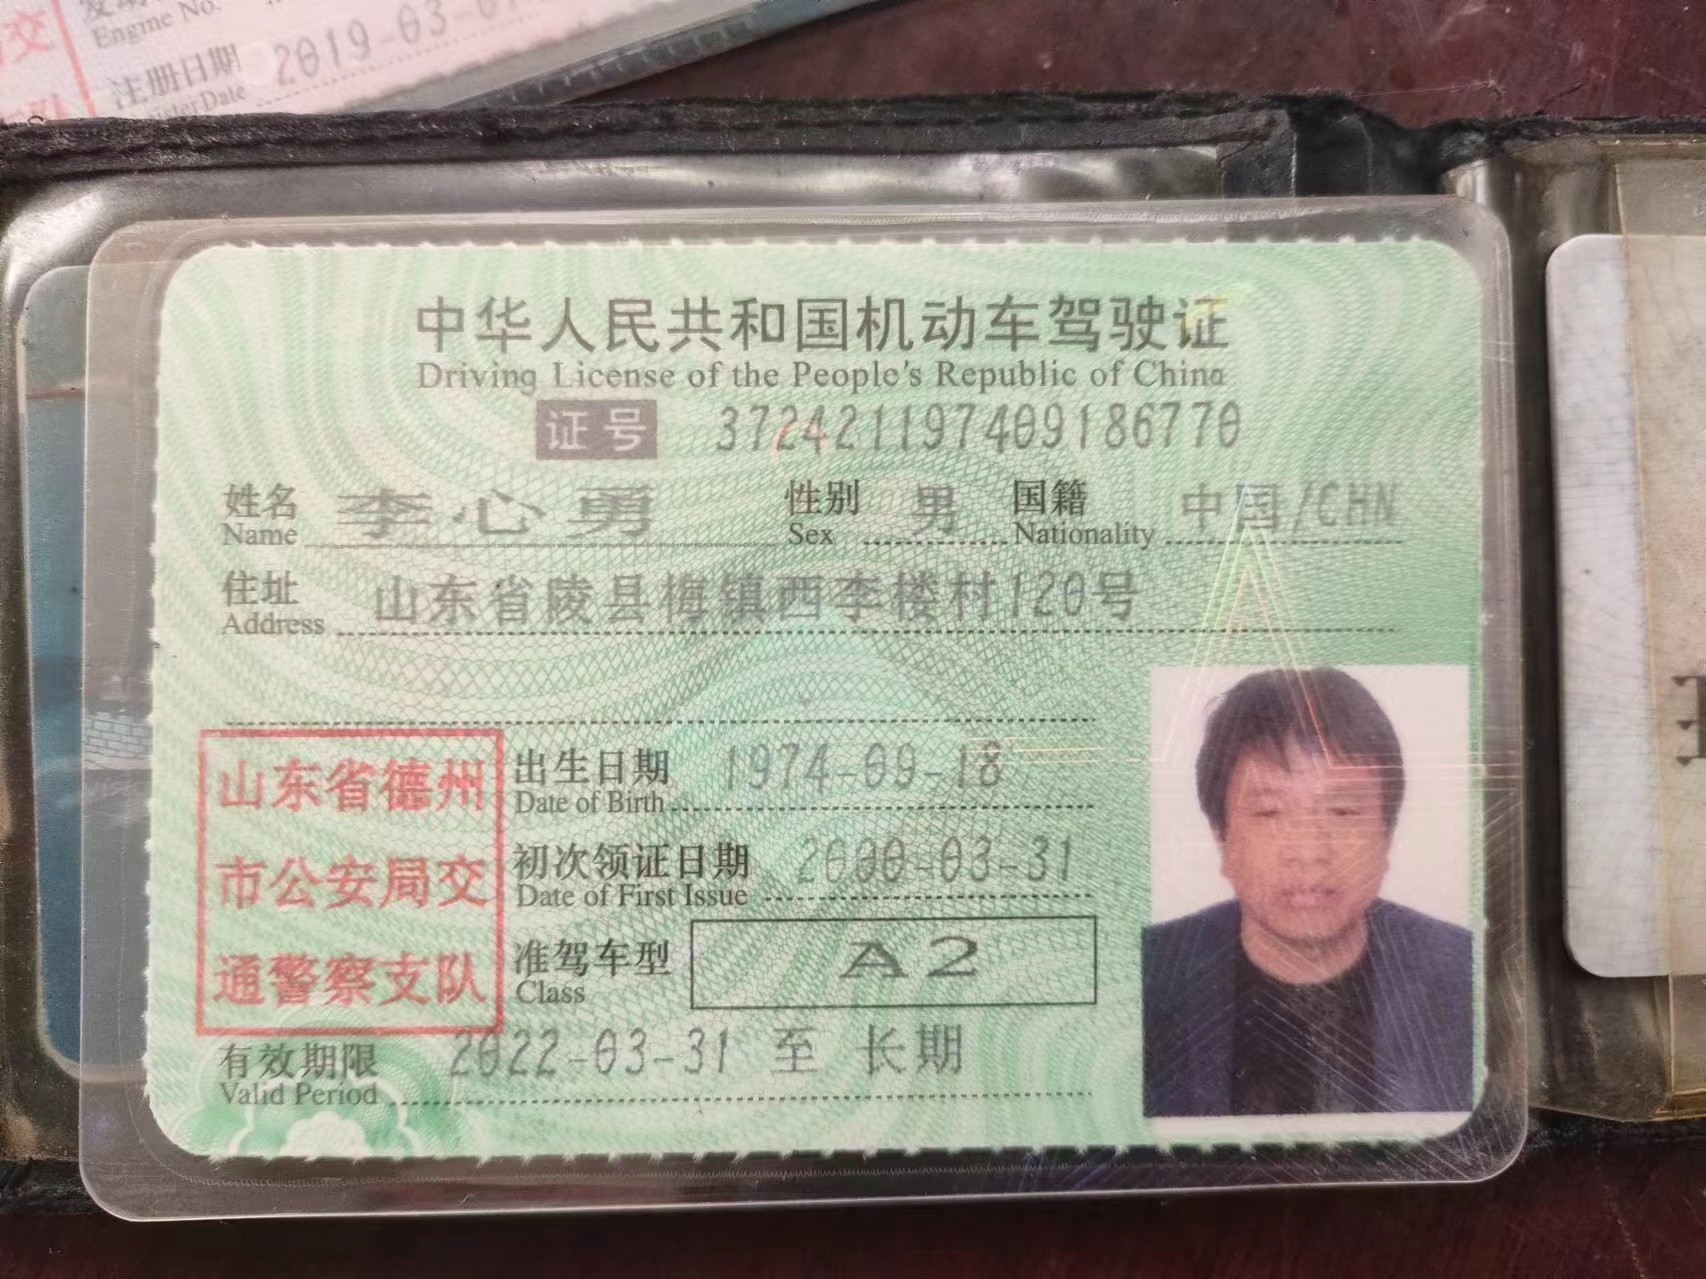 Engine No.
注册日期 2019-03-0
交
中华人民共和国机动车驾驶证
Driving License of the People's Republic of China
证号 372421197409186770
姓名 李心勇 性别 男 国籍 中国/CHN
Name Sex Nationality
住址 山东省陵县梅镇西李楼村120号
Address
山东省德州
市公安局交
通警察支队
出生日期 1974-09-18
Date of Birth
初次领证日期 2000-03-31
Date of First Issue
准驾车型 A2
Class
有效期限 2022-03-31 至 长期
Valid Period